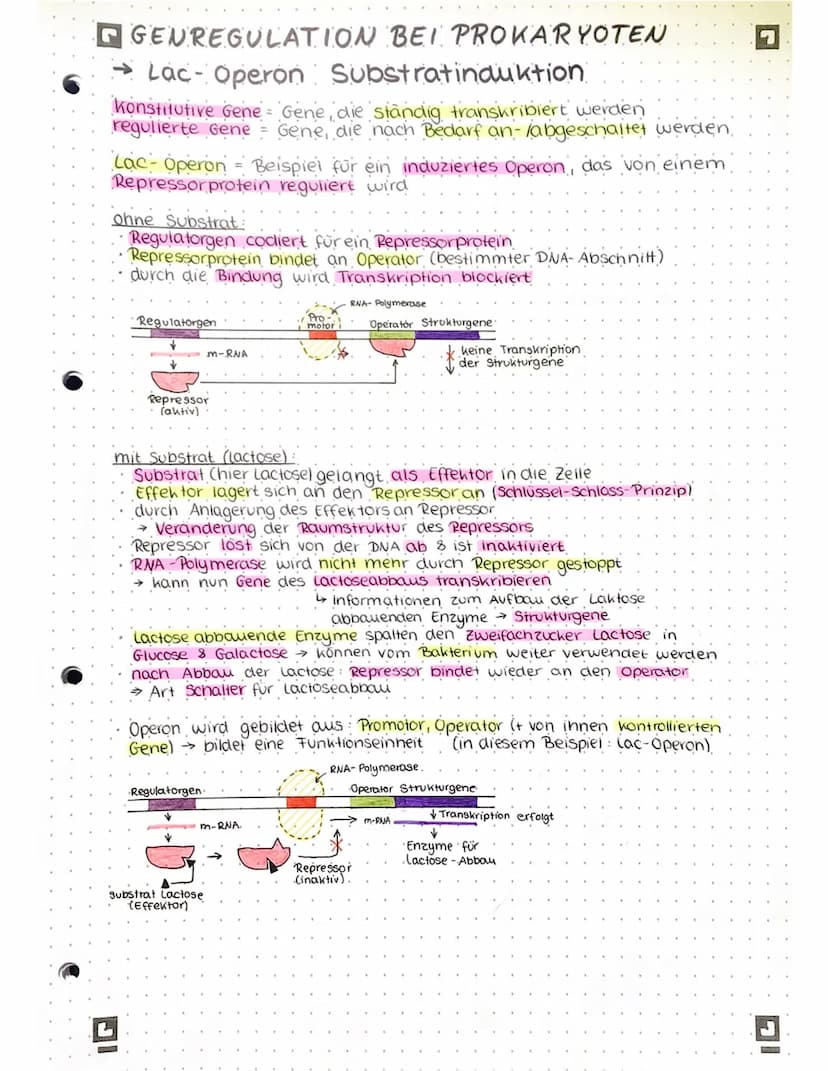 GENREGULATION BEI PROKARYOTEN
→ Lac-Operon Substratinduktion
Konstitutive Gene = Gene, die ständig transkribiert werden
regulierte Gene = Gene, die nach Bedarf an-/abgeschaltet werden
Lac-Operon = Beispiel für ein induziertes Operon, das von einem
Repressorprotein reguliert wird
ohne Substrat:
· Regulatorgen codiert für ein Repressorprotein
· Repressorprotein bindet an Operator (bestimmter DNA-Abschnitt)
· durch die Bindung wird Transkription blockiert
RNA-Polymerase
Regulatorgen
Pro-
motor
Operator Strukturgene
m-RNA
keine Transkription
der Strukturgene
Repressor
(aktiv)
mit Substrat (Lactose):
· Substrat (hier Lactose) gelangt als Effektor in die Zelle
· Effektor lagert sich an den Repressor an (Schlüssel-Schloss-Prinzip)
· durch Anlagerung des Effektors an Repressor
→ Veränderung der Raumstruktur des Repressors
· Repressor löst sich von der DNA ab & ist inaktiviert
· RNA-Polymerase wird nicht mehr durch Repressor gestoppt
→ kann nun Gene des Lactoseabbaus transkribieren
↳ Informationen zum Aufbau der Laktose
abbauenden Enzyme → Strukturgene
· Lactose abbauende Enzyme spalten den Zweifachzucker Lactose in
Glucose & Galactose → können vom Bakterium weiter verwendet werden
· nach Abbau der Lactose: Repressor bindet wieder an den Operator
⇒ Art Schalter für Lactoseabbau
· Operon wird gebildet aus: Promotor, Operator (+ von ihnen kontrollierten
Gene) → bildet eine Funktionseinheit (in diesem Beispiel: Lac-Operon)
RNA-Polymerase
Regulatorgen
Operator Strukturgene
m-RNA
m-RNA
Transkription erfolgt
Enzyme für
Lactose-Abbau
Repressor
(inaktiv)
Substrat Lactose
(Effektor)